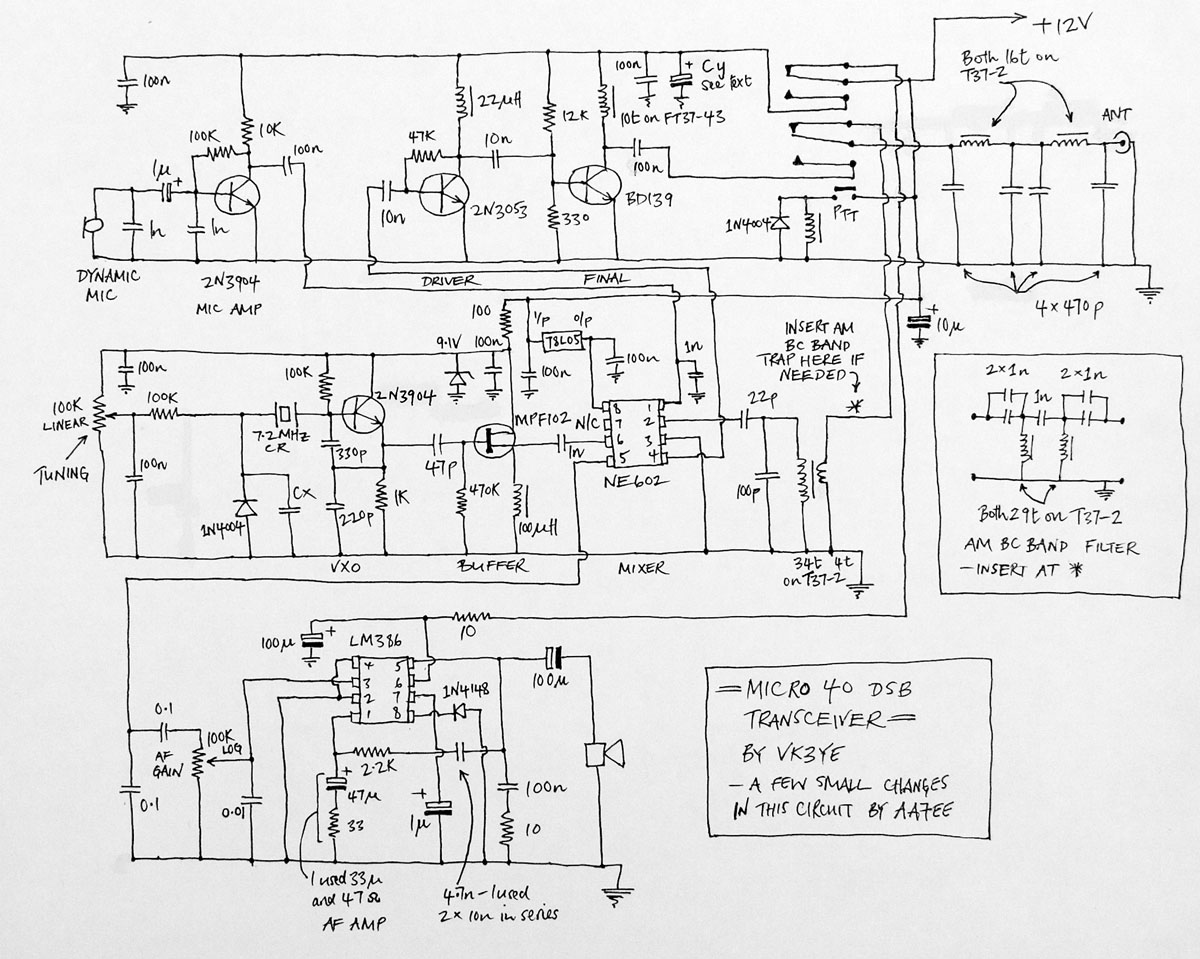 +12V
Both 16t on
T37-2
ANT
100n
100n
+ Cy
see text
22μH
10t on FT37-43
12K
10K
100K
100n
47K
10n
1μ
+
100n
2N3053
BD139
10n
330
1n
1n
1N4004
PTT
DYNAMIC
MIC
2N3904
MIC AMP
DRIVER
FINAL
4 x 470p
+
10μ
100
I/p
o/p
78L05
9.1V
100n
100n
100n
1n
INSERT AM
BC BAND
TRAP HERE IF
NEEDED
*
100n
100K
LINEAR
TUNING
100K
100K
2N3904
7.2MHz
CR
330p
47p
MPF102
N/C
8 1
7 2
6 3
5 4
NE602
22p
1n
100n
CX
1N4004
220p
1K
470K
100μH
100p
VXO
BUFFER
MIXER
34t 4t
on T37-2
2x1n
2x1n
1n
Both 29t on T37-2
AM BC BAND FILTER
- INSERT AT *
100μ
+
LM386
10
4 5
3 6
2 7
1 8
1N4148
100μ
0.1
100K
LOG
AF
GAIN
0.1
0.01
2.2K
+
47μ
33
+
1μ
100n
10
I used 33μ
and 47Ω
AF AMP
4.7n - I used
2 x 10n in series
= MICRO 40 DSB
TRANSCEIVER =
BY VK3YE
- A FEW SMALL CHANGES
IN THIS CIRCUIT BY AA7EE